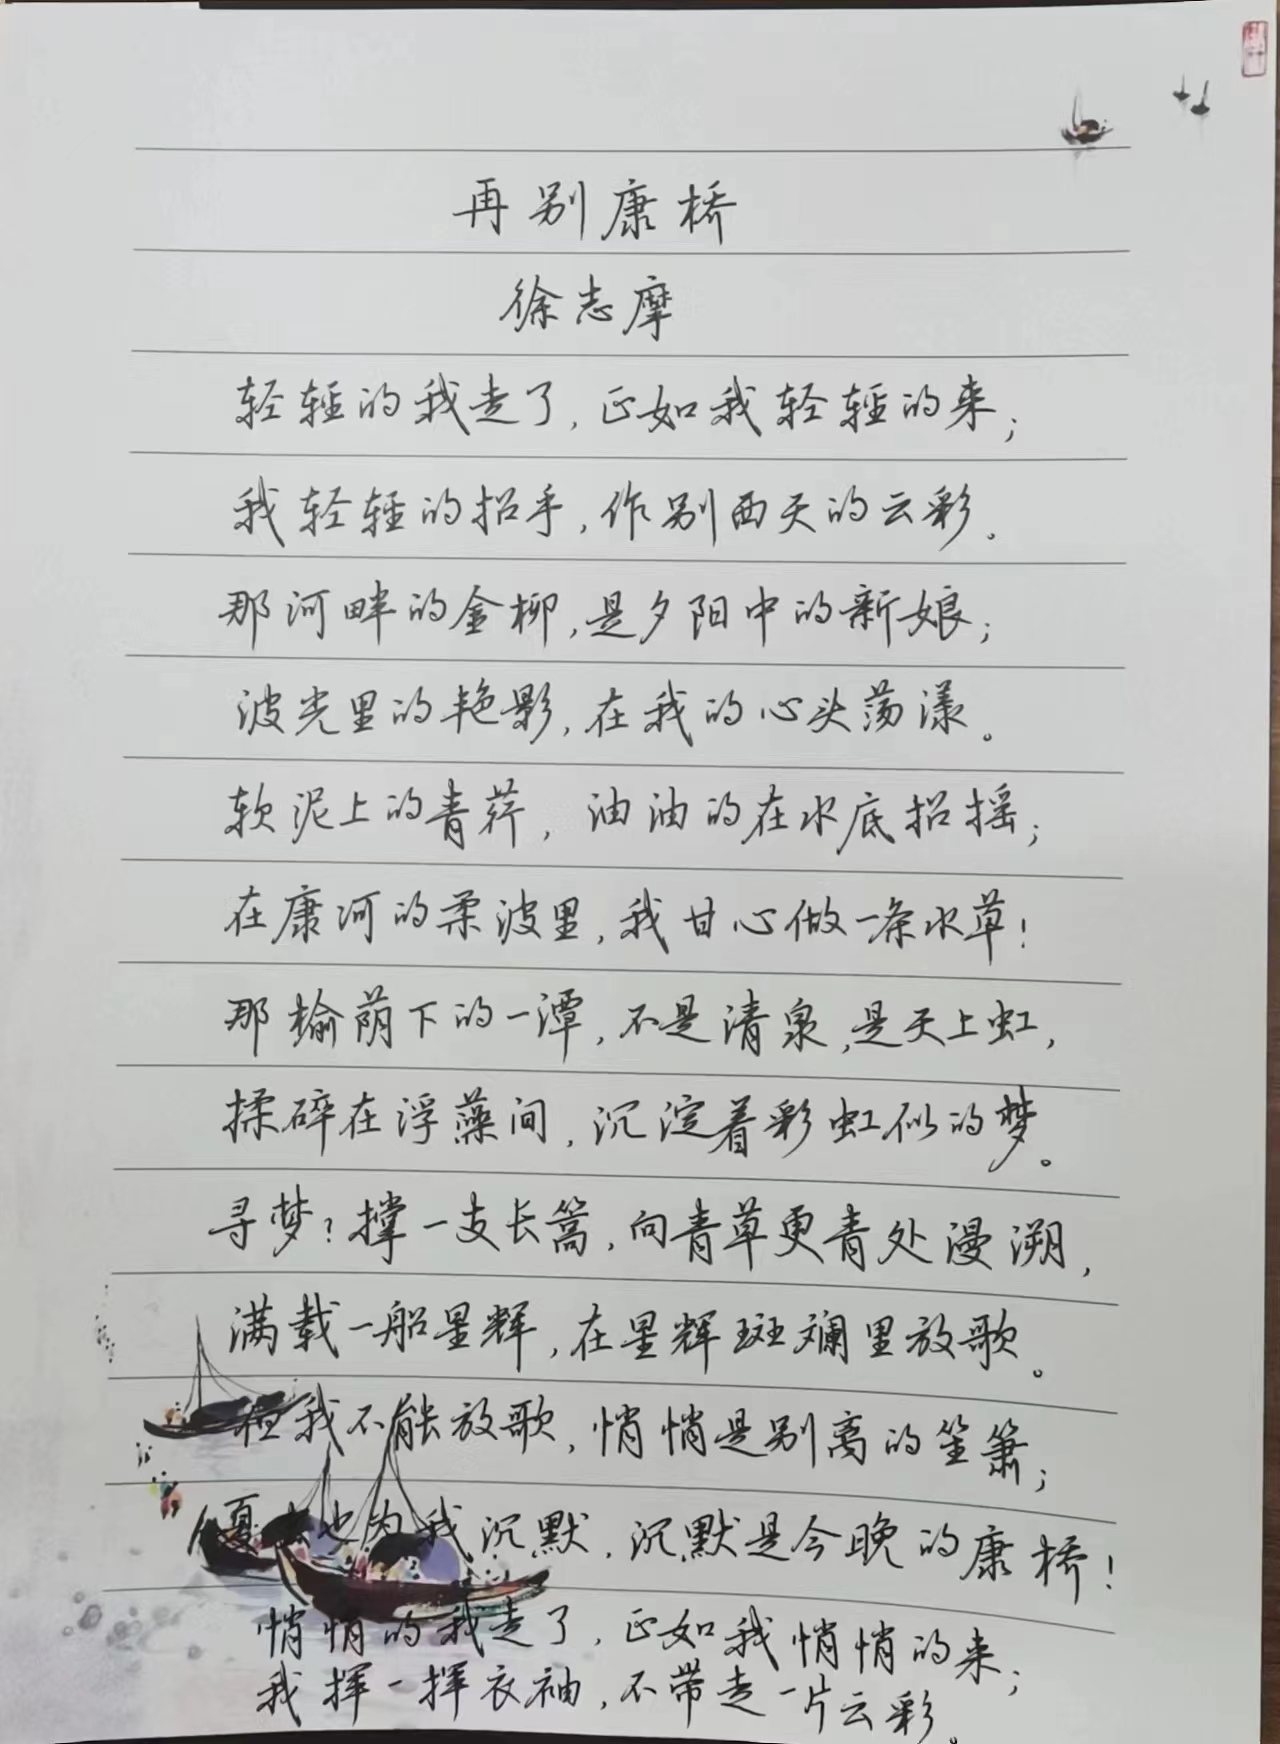 再别康桥
徐志摩
轻轻的我走了，正如我轻轻的来；
我轻轻的招手，作别西天的云彩。
那河畔的金柳，是夕阳中的新娘；
波光里的艳影，在我的心头荡漾。
软泥上的青荇，油油的在水底招摇；
在康河的柔波里，我甘心做一条水草！
那榆荫下的一潭，不是清泉，是天上虹，
揉碎在浮藻间，沉淀着彩虹似的梦。
寻梦？撑一支长篙，向青草更青处漫溯，
满载一船星辉，在星辉斑斓里放歌。
但我不能放歌，悄悄是别离的笙箫；
夏虫也为我沉默，沉默是今晚的康桥！
悄悄的我走了，正如我悄悄的来；
我挥一挥衣袖，不带走一片云彩。